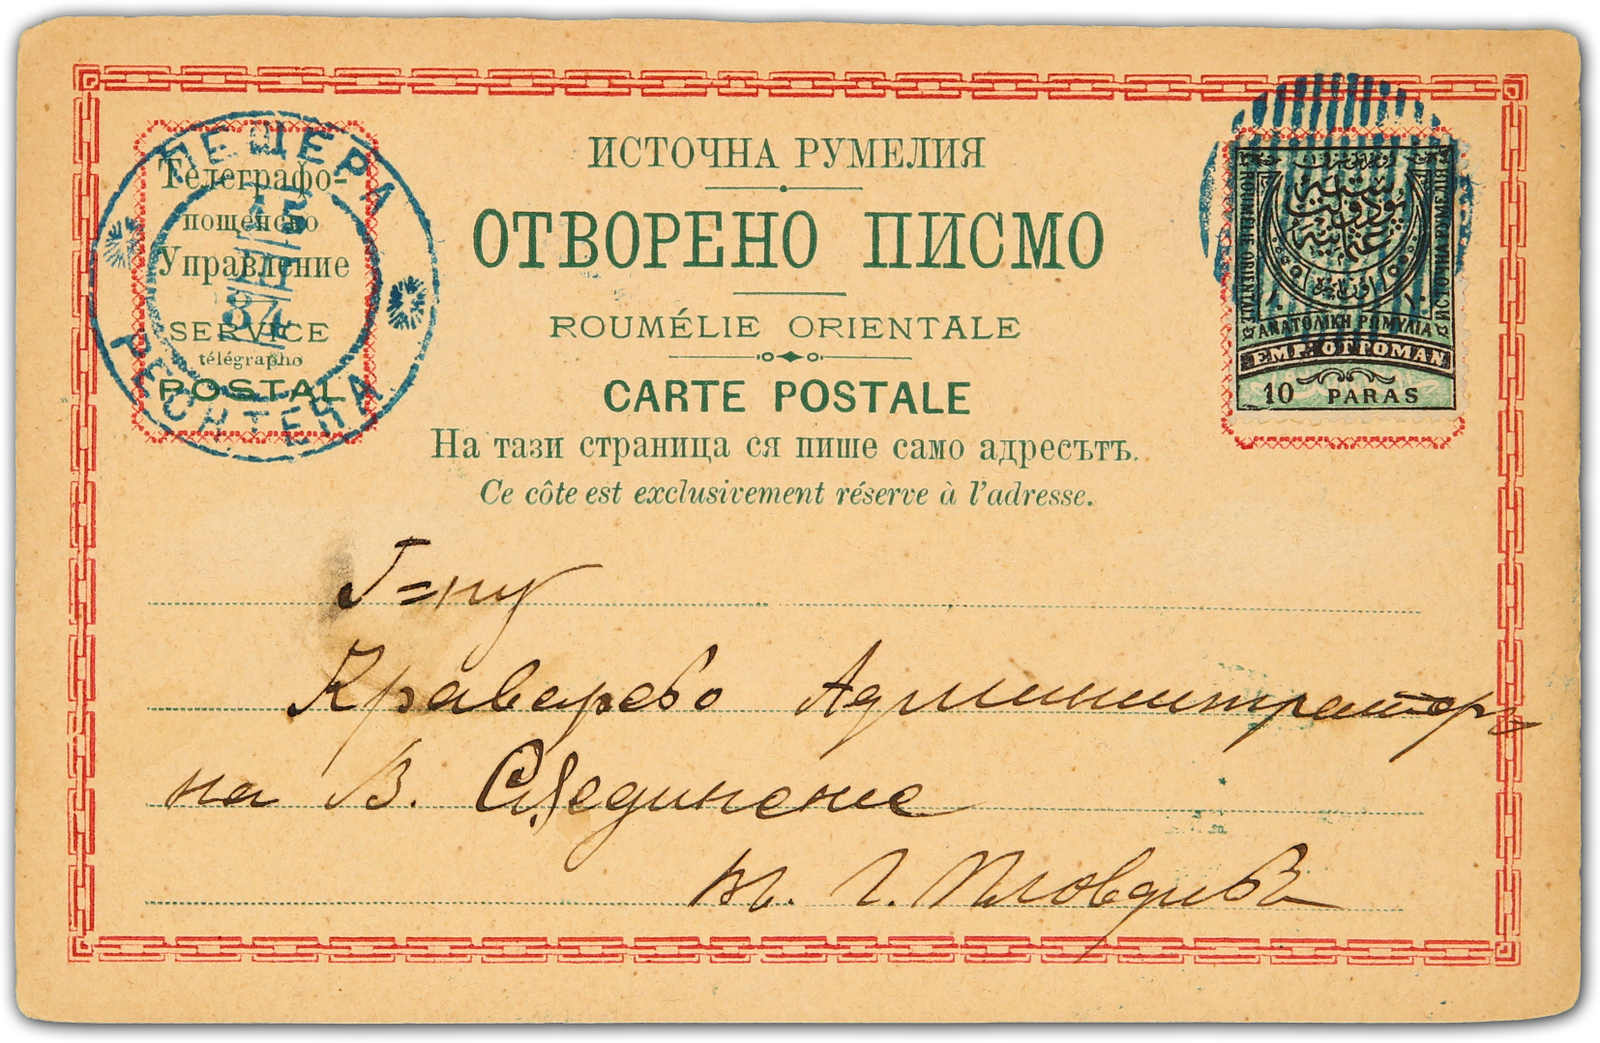 ПЕЩЕРА
PECHTERA
Телеграфо-
пощенско
Управление
SERVICE
télégrapho
POSTAL
ИСТОЧНА РУМЕЛИЯ
ОТВОРЕНО ПИСМО
ROUMÉLIE ORIENTALE
CARTE POSTALE
На тази страница ся пише само адресътъ.
Ce côte est exclusivement réserve à l'adresse.
ROUMELIE ORIENTALE
ΑΝΑΤΟΛΙΚΗ ΡΩΜΥΛΙΑ
EMP: OTTOMAN
10 PARAS
Г=ну
Администраторъ
на В. Съединение
въ. г. Пловдивъ